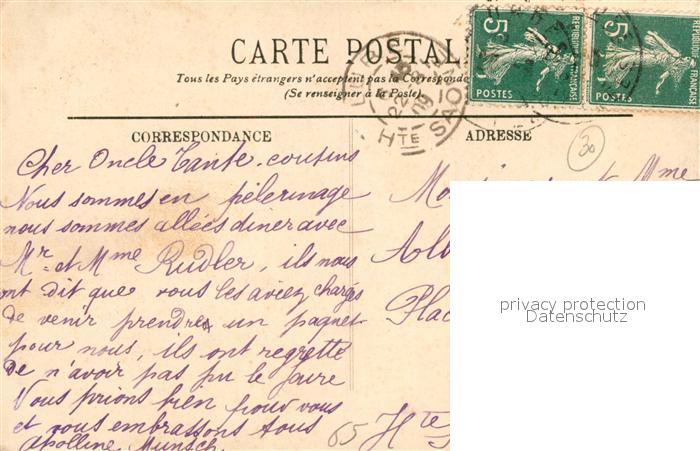 CARTE POSTALE
Tous les Pays étrangers n'acceptent pas la Correspondance
(Se renseigner à la Poste)
5c 5c
REPUBLIQUE FRANÇAISE REPUBLIQUE FRANÇAISE
POSTES POSTES
22
09
HTE SAO
CORRESPONDANCE
ADRESSE
30
Cher Oncle Tante, cousins
Nous sommes en pèlerinage
nous sommes allées diner avec
Mr et Mme Rudler, ils nous
ont dit que vous les aviez chargés
de venir prendre un paquet
pour nous, ils ont regretté
de n'avoir pas pu le faire
Nous prions bien pour vous
et vous embrassons tous
Apolline Munsch
Mme
Plac
65 Hte
privacy protection
Datenschutz